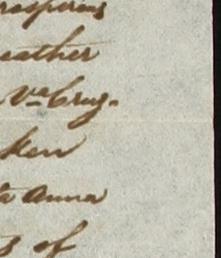 rospering
eather
Va Cruz.
ken
ta Anna
ts of